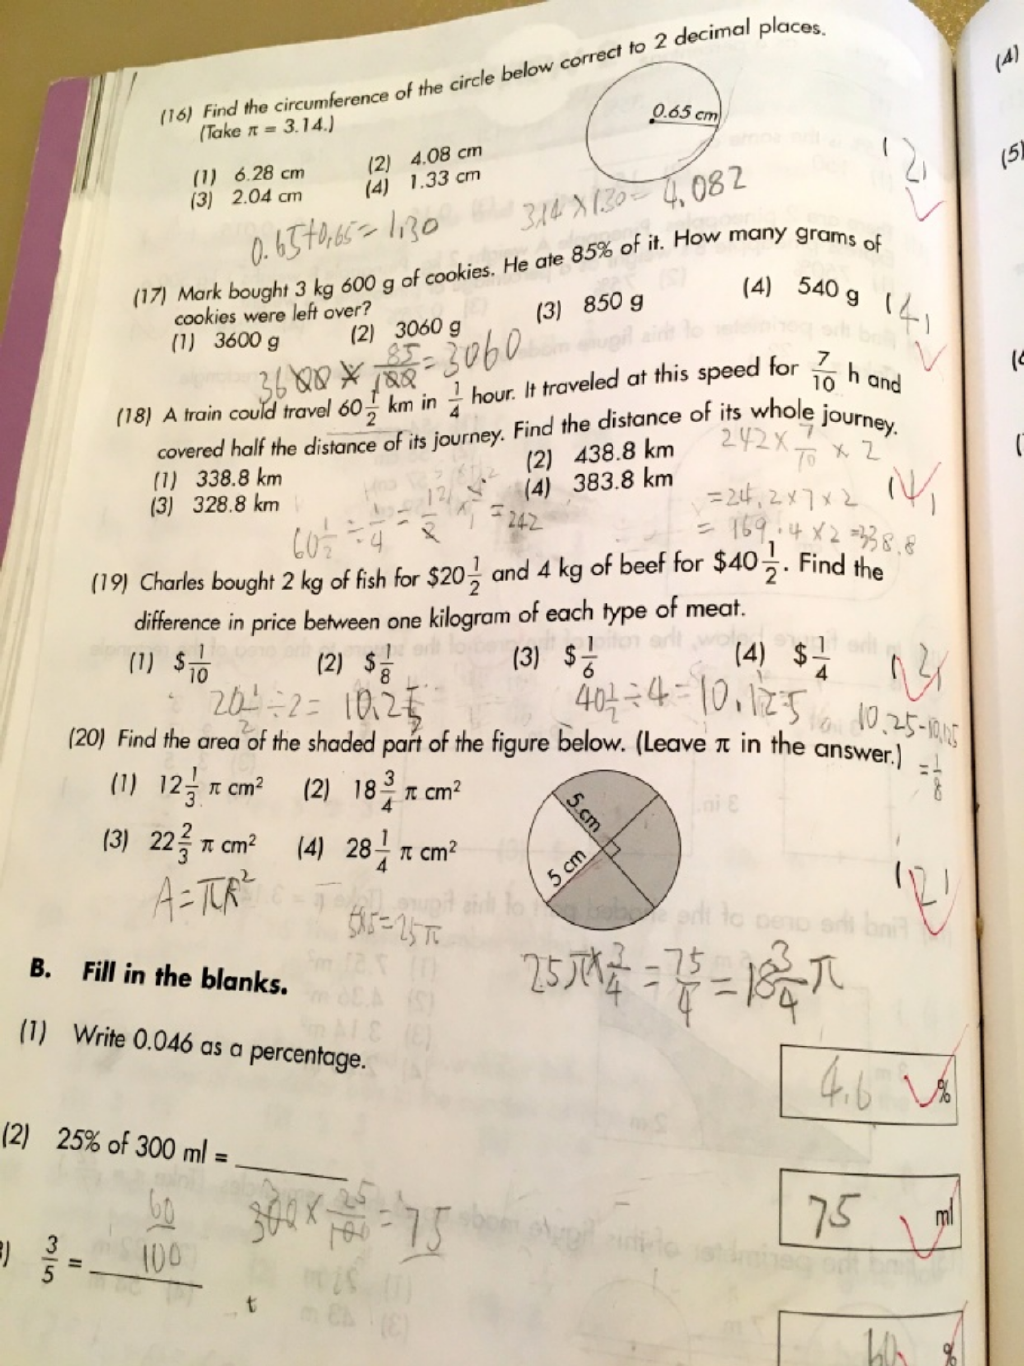 (16) Find the circumference of the circle below correct to 2 decimal places.
(Take π = 3.14.)
0.65 cm
(1) 6.28 cm (2) 4.08 cm
(3) 2.04 cm (4) 1.33 cm
(2)
0.65+0.65=1.30 3.14×1.30=4.082
(17) Mark bought 3 kg 600 g of cookies. He ate 85% of it. How many grams of
cookies were left over?
(1) 3600 g (2) 3060 g (3) 850 g (4) 540 g
(4)
3600 × 85/100 = 3060
(18) A train could travel 60 1/2 km in 1/4 hour. It traveled at this speed for 7/10 h and
covered half the distance of its journey. Find the distance of its whole journey.
(1) 338.8 km (2) 438.8 km
(3) 328.8 km (4) 383.8 km
242 × 7/10 × 2
=24.2×7×2
= 169.4×2=338.8
(1)
60 1/2 ÷ 1/4 = 121/2 × 4/1 = 242
(19) Charles bought 2 kg of fish for $20 1/2 and 4 kg of beef for $40 1/2. Find the
difference in price between one kilogram of each type of meat.
(1) $ 1/10 (2) $ 1/8 (3) $ 1/6 (4) $ 1/4
(2)
20 1/2 ÷2= 10.25 40 1/2 ÷4=10.125 10.25-10.125
= 1/8
(20) Find the area of the shaded part of the figure below. (Leave π in the answer.)
(1) 12 1/3 π cm² (2) 18 3/4 π cm²
(3) 22 2/3 π cm² (4) 28 1/4 π cm²
5 cm
5 cm
(2)
A=πR²
5×5=25π
25π× 3/4 = 75/4 = 18 3/4 π
B. Fill in the blanks.
(1) Write 0.046 as a percentage.
4.6 %
(2) 25% of 300 ml = ____
75 ml
300 × 25/100 = 75
3/5 = 60/100
60 %
(4)
(5)